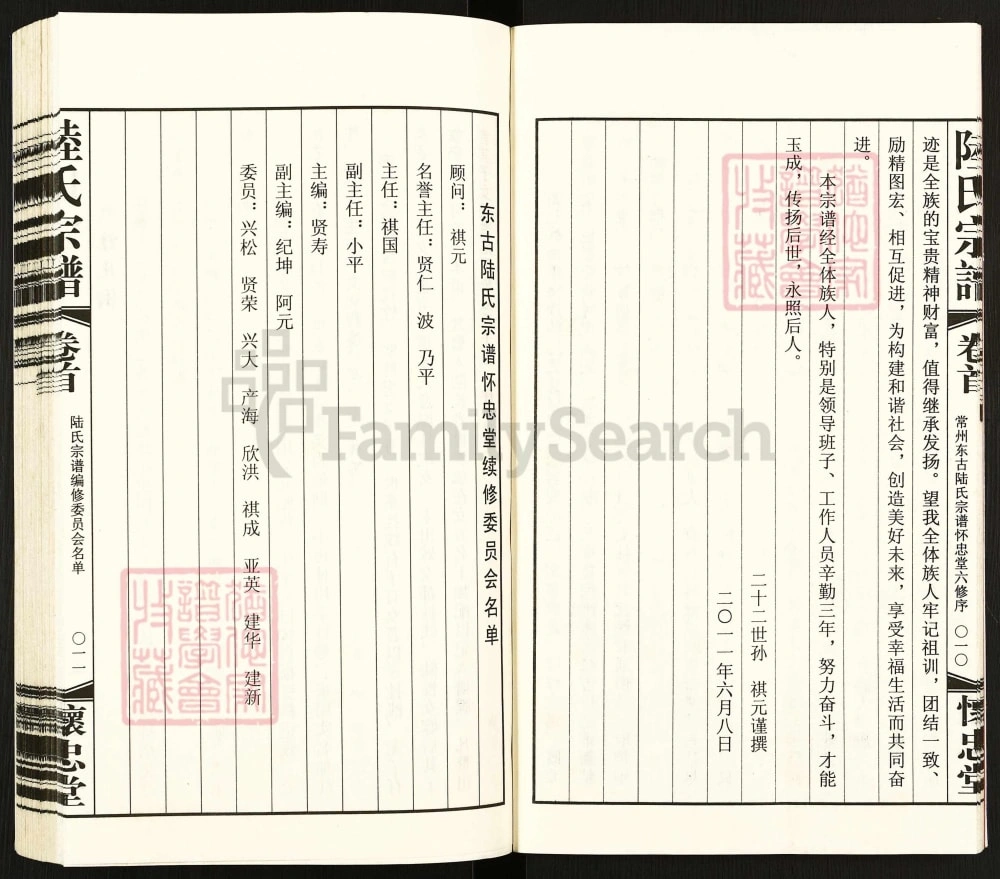 陸氏宗譜
卷首
常州东古陆氏宗谱怀忠堂六修序
〇一〇
懷忠堂
迹是全族的宝贵精神财富，值得继承发扬。望我全体族人牢记祖训，团结一致、
励精图宏、相互促进，为构建和谐社会，创造美好未来，享受幸福生活而共同奋
进。
本宗谱经全体族人，特别是领导班子、工作人员辛勤三年，努力奋斗，才能
玉成，传扬后世，永照后人。
二十二世孙 祺元谨撰
二〇一一年六月八日
东古陆氏宗谱怀忠堂续修委员会名单
顾问：祺元
名誉主任：贤仁 波 乃平
主任：祺国
副主任：小平
主编：贤寿
副主编：纪坤 阿元
委员：兴松 贤荣 兴大 产海 欣洪 祺成 亚英 建华 建新
陸氏宗譜
卷首
陆氏宗谱编修委员会名单
〇一一
懷忠堂
FamilySearch